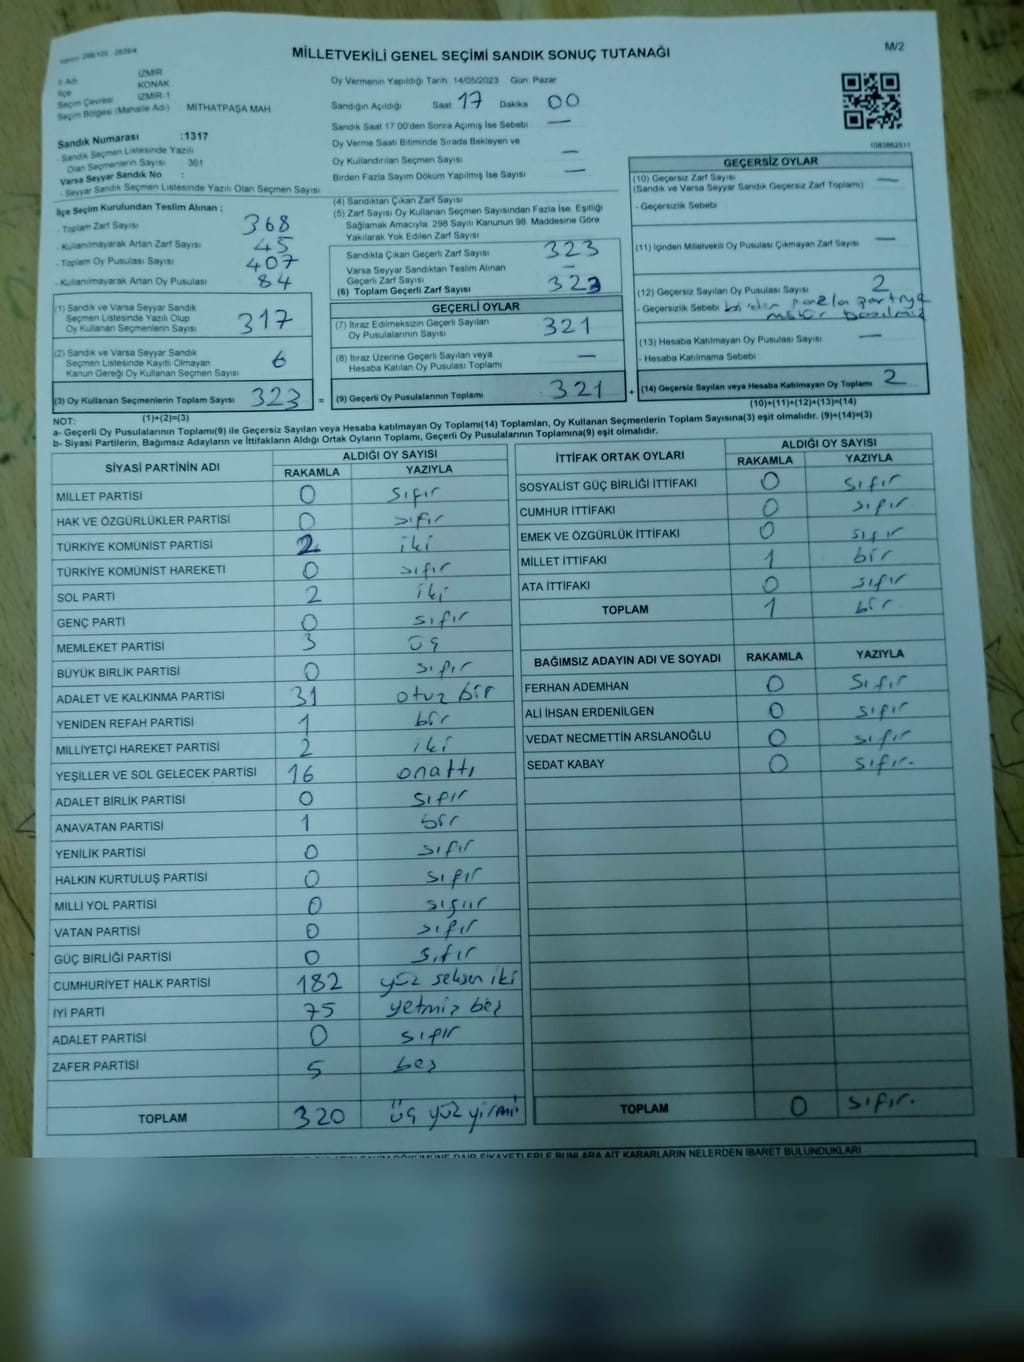 MİLLETVEKİLİ GENEL SEÇİMİ SANDIK SONUÇ TUTANAĞI
M/2
İl Adı İZMİR
İlçe KONAK
Seçim Çevresi İZMİR-1
Seçim Bölgesi (Mahalle Adı) MİTHATPAŞA MAH.
Sandık Numarası :1317
- Sandık Seçmen Listesinde Yazılı
Olan Seçmenlerin Sayısı 361
Varsa Seyyar Sandık No :
- Seyyar Sandık Seçmen Listesinde Yazılı Olan Seçmen Sayısı
Oy Vermenin Yapıldığı Tarih 14/05/2023 Gün: Pazar
Sandığın Açıldığı Saat 17 Dakika 00
Sandık Saat 17:00'den Sonra Açılmış İse Sebebi —
Oy Verme Saati Bitiminde Sırada Bekleyen ve
Oy Kullandırılan Seçmen Sayısı —
Birden Fazla Sayım Döküm Yapılmış İse Sayısı —
1083862511
İlçe Seçim Kurulundan Teslim Alınan ;
- Toplam Zarf Sayısı 368
- Kullanılmayarak Artan Zarf Sayısı 45
- Toplam Oy Pusulası Sayısı 407
- Kullanılmayarak Artan Oy Pusulası 84
(1) Sandık ve Varsa Seyyar Sandık
Seçmen Listesinde Yazılı Olup
Oy Kullanan Seçmenlerin Sayısı 317
(2) Sandık ve Varsa Seyyar Sandık
Seçmen Listesinde Kayıtlı Olmayan
Kanun Gereği Oy Kullanan Seçmen Sayısı 6
(3) Oy Kullanan Seçmenlerin Toplam Sayısı 323 =
(1)+(2)=(3)
(4) Sandıktan Çıkan Zarf Sayısı
(5) Zarf Sayısı Oy Kullanan Seçmen Sayısından Fazla İse, Eşitliği
Sağlamak Amacıyla; 298 Sayılı Kanunun 98. Maddesine Göre
Yakılarak Yok Edilen Zarf Sayısı
Sandıkta Çıkan Geçerli Zarf Sayısı 323
Varsa Seyyar Sandıktan Teslim Alınan
Geçerli Zarf Sayısı —
(6) Toplam Geçerli Zarf Sayısı 323
GEÇERLİ OYLAR
(7) İtiraz Edilmeksizin Geçerli Sayılan
Oy Pusulalarının Sayısı 321
(8) İtiraz Üzerine Geçerli Sayılan veya
Hesaba Katılan Oy Pusulası Toplamı —
(9) Geçerli Oy Pusulalarının Toplamı 321 +
GEÇERSİZ OYLAR
(10) Geçersiz Zarf Sayısı —
(Sandık ve Varsa Seyyar Sandık Geçersiz Zarf Toplamı)
- Geçersizlik Sebebi
(11) İçinden Milletvekili Oy Pusulası Çıkmayan Zarf Sayısı —
(12) Geçersiz Sayılan Oy Pusulası Sayısı 2
- Geçersizlik Sebebi birden fazla partiye
mühür basılmış
(13) Hesaba Katılmayan Oy Pusulası Sayısı —
- Hesaba Katılmama Sebebi
(14) Geçersiz Sayılan veya Hesaba Katılmayan Oy Toplamı 2
(10)+(11)+(12)+(13)=(14)
NOT:
a- Geçerli Oy Pusulalarının Toplamı(9) ile Geçersiz Sayılan veya Hesaba katılmayan Oy Toplamı(14) Toplamları, Oy Kullanan Seçmenlerin Toplam Sayısına(3) eşit olmalıdır. (9)+(14)=(3)
b- Siyasi Partilerin, Bağımsız Adayların ve İttifakların Aldığı Ortak Oyların Toplamı, Geçerli Oy Pusulalarının Toplamına(9) eşit olmalıdır.
SİYASİ PARTİNİN ADI ALDIĞI OY SAYISI
RAKAMLA YAZIYLA
MİLLET PARTİSİ 0 sıfır
HAK VE ÖZGÜRLÜKLER PARTİSİ 0 sıfır
TÜRKİYE KOMÜNİST PARTİSİ 2 iki
TÜRKİYE KOMÜNİST HAREKETİ 0 sıfır
SOL PARTİ 2 iki
GENÇ PARTİ 0 sıfır
MEMLEKET PARTİSİ 3 üç
BÜYÜK BİRLİK PARTİSİ 0 sıfır
ADALET VE KALKINMA PARTİSİ 31 otuz bir
YENİDEN REFAH PARTİSİ 1 bir
MİLLİYETÇİ HAREKET PARTİSİ 2 iki
YEŞİLLER VE SOL GELECEK PARTİSİ 16 onaltı
ADALET BİRLİK PARTİSİ 0 sıfır
ANAVATAN PARTİSİ 1 bir
YENİLİK PARTİSİ 0 sıfır
HALKIN KURTULUŞ PARTİSİ 0 sıfır
MİLLİ YOL PARTİSİ 0 sıfır
VATAN PARTİSİ 0 sıfır
GÜÇ BİRLİĞİ PARTİSİ 0 sıfır
CUMHURİYET HALK PARTİSİ 182 yüz seksen iki
İYİ PARTİ 75 yetmiş beş
ADALET PARTİSİ 0 sıfır
ZAFER PARTİSİ 5 beş
TOPLAM 320 üç yüz yirmi
İTTİFAK ORTAK OYLARI ALDIĞI OY SAYISI
RAKAMLA YAZIYLA
SOSYALİST GÜÇ BİRLİĞİ İTTİFAKI 0 sıfır
CUMHUR İTTİFAKI 0 sıfır
EMEK VE ÖZGÜRLÜK İTTİFAKI 0 sıfır
MİLLET İTTİFAKI 1 bir
ATA İTTİFAKI 0 sıfır
TOPLAM 1 bir
BAĞIMSIZ ADAYIN ADI VE SOYADI RAKAMLA YAZIYLA
FERHAN ADEMHAN 0 sıfır
ALİ İHSAN ERDENİLGEN 0 sıfır
VEDAT NECMETTİN ARSLANOĞLU 0 sıfır
SEDAT KABAY 0 sıfır.
TOPLAM 0 sıfır.
DAİR ŞİKAYETLERLE BUNLARA AİT KARARLARIN NELERDEN İBARET BULUNDUKLARI